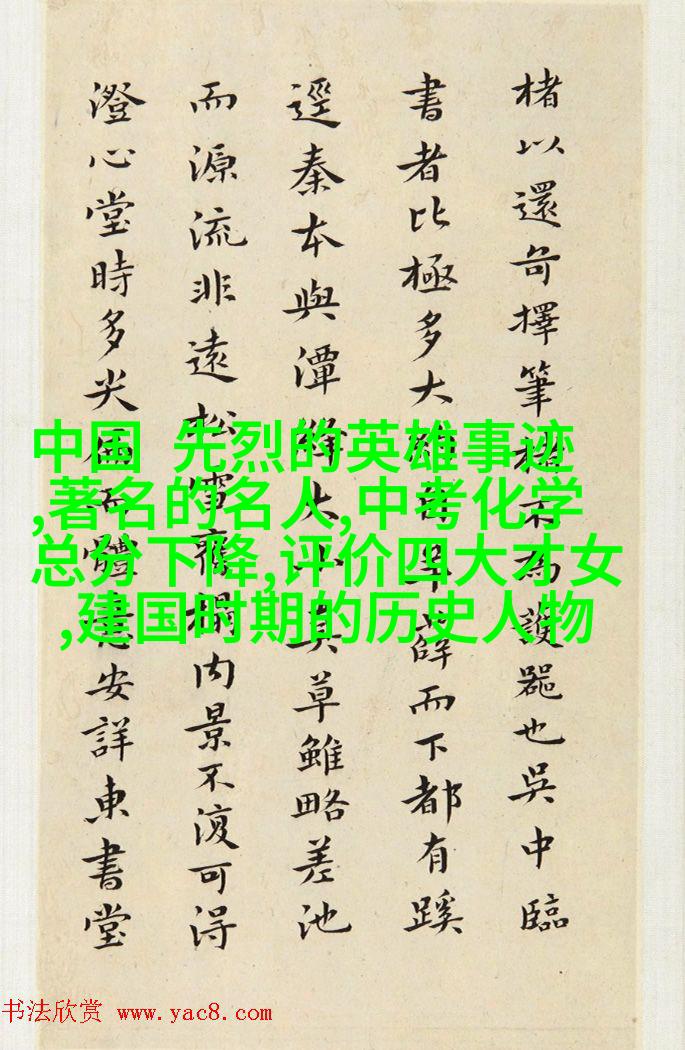 楮以還奇擇筆為護器也吳中臨
書者比極多大薛而下都有蹊
逕秦本與潭絳大草雖略差池
而源流非遠松雪齋內景不復可得
澄心堂時多尖而體安詳東書堂
中国 先烈的英雄事迹
,著名的名人,中考化学
总分下降,评价四大才女
,建国时期的历史人物
书法欣赏 www.yac8.com